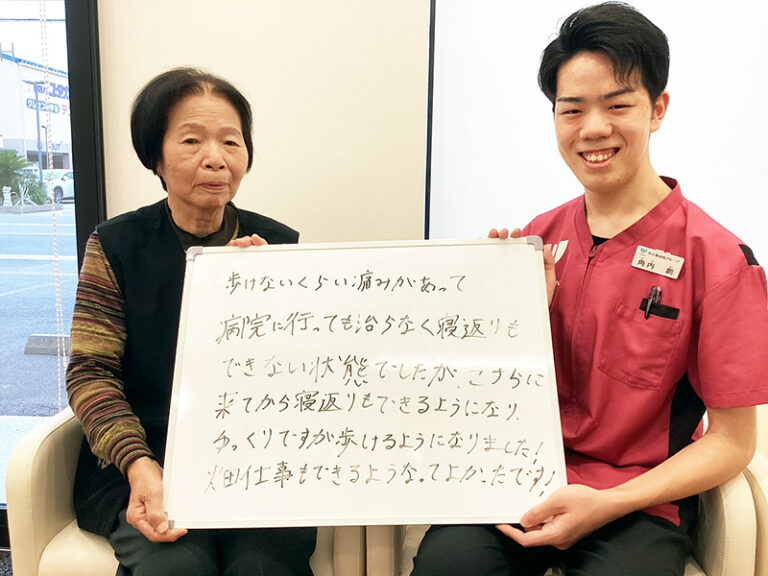 歩けないくらい痛みがあって
病院に行っても治らなく寝返りも
できない状態でしたが、こちらに
来てから寝返りもできるようになり、
ゆっくりですが歩けるようになりました!
畑仕事もできるようなってよかったです!
角内 創